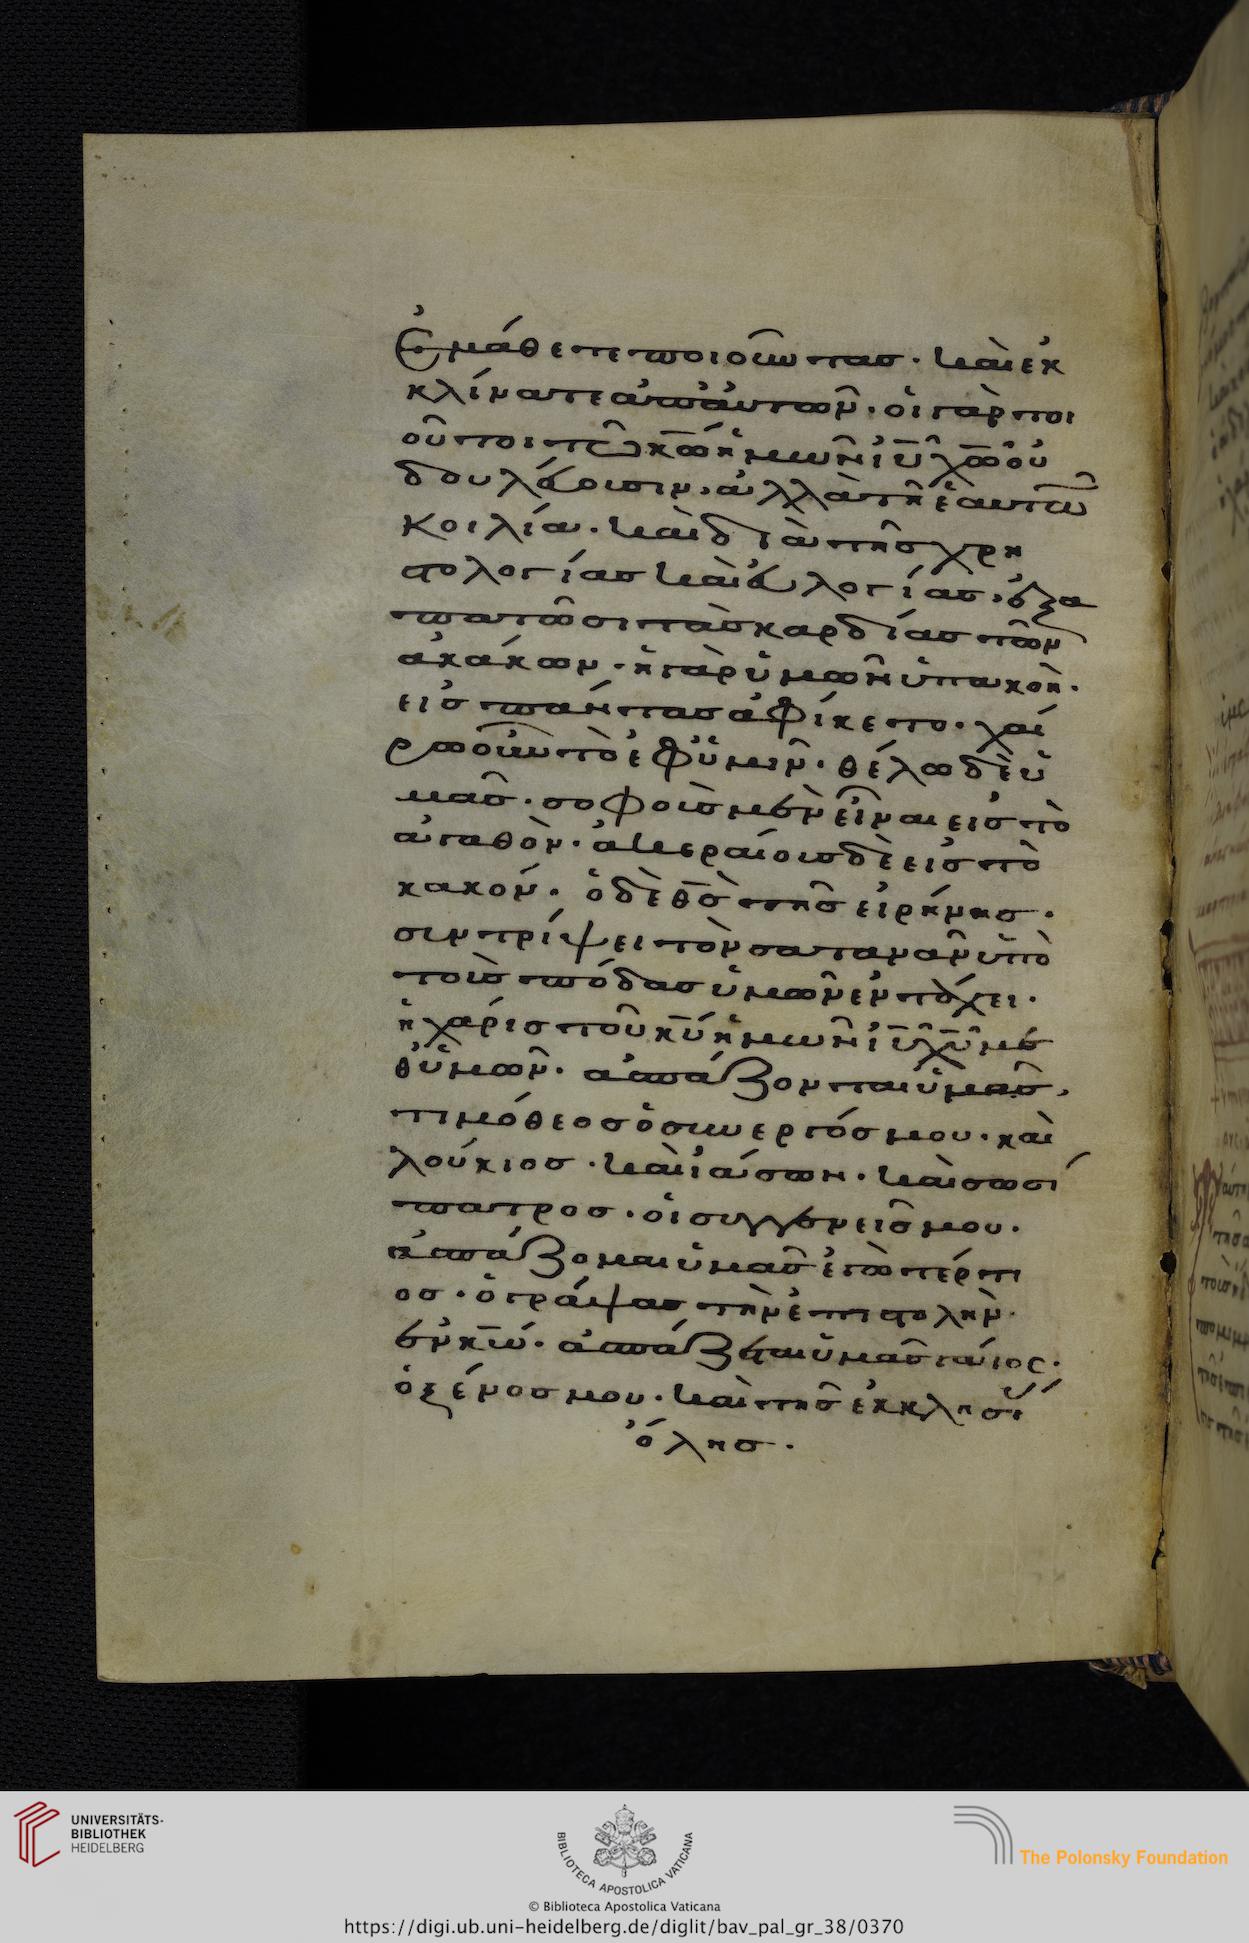 ἐμάθετε ποιοῦντας· καὶ ἐκ
κλίνατε ἀπ' αὐτῶν· οἱ γὰρ τοι
οῦτοι τῶ κω ἡμῶν ιυ χω οὐ
δουλεύουσιν, ἀλλὰ τῆ ἑαυτῶν
κοιλία· καὶ διὰ τῆς χρη
στολογίας καὶ εὐλογίας, ἐξα
πατῶσι τὰς καρδίας τῶν
ἀκάκων· ἡ γὰρ ὑμῶν ὑπακοὴ·
εἰς πάντας ἀφίκετο· χαί
ρω οὖν τὸ ἐφ' ὑμῖν· θέλω δὲ ὑ
μᾶς· σοφοὺς μὲν εἶναι εἰς τὸ
ἀγαθὸν· ἀκεραίους δὲ εἰς τὸ
κακόν· ὁ δὲ θς τῆς εἰρήνης·
συντρίψει τὸν σατανᾶν ὑπὸ
τοὺς πόδας ὑμῶν ἐν τάχει·
ἡ χάρις τοῦ κυ ἡμῶν ιυ χυ με
θ' ὑμῶν· ἀσπάζονται ὑμᾶς,
τιμόθεος ὁ συνεργός μου· καὶ
λούκιος· καὶ ἰάσων· καὶ σωσί
πατρος· οἱ συγγενεῖς μου·
ἀσπάζομαι ὑμᾶς ἐγὼ τέρτι
ος· ὁ γράψας τὴν ἐπιστολὴν·
ἐν κω· ἀσπάζεται ὑμᾶς γάϊος·
ὁ ξένος μου· καὶ τῆς ἐκκλησί
ὅλης·
UNIVERSITÄTS-
BIBLIOTHEK
HEIDELBERG
BIBLIOTECA APOSTOLICA VATICANA
The Polonsky Foundation
© Biblioteca Apostolica Vaticana
https://digi.ub.uni-heidelberg.de/diglit/bav_pal_gr_38/0370